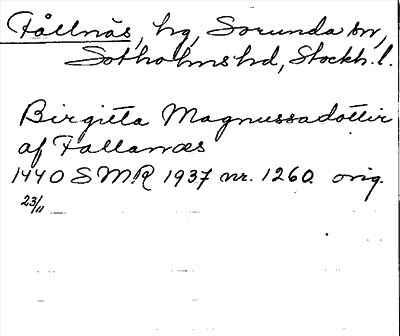 Fållnäs, hg, Sorunda sn,
Sotholms hd, Stockh. l.
Birgitta Magnussadottir
af Fallanæs
1440 SMR 1937 nr. 1260. orig.
23/11